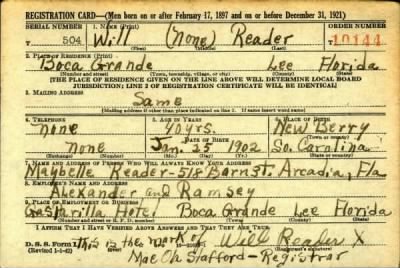 REGISTRATION CARD—(Men born on or after February 17, 1897 and on or before December 31, 1921)
SERIAL NUMBER 1. NAME (Print) ORDER NUMBER
T 504 Will (None) Reader 10144
(First) (Middle) (Last)
2. PLACE OF RESIDENCE (Print)
Boca Grande Lee Florida
(Number and street) (Town, township, village, or city) (County) (State)
[THE PLACE OF RESIDENCE GIVEN ON THE LINE ABOVE WILL DETERMINE LOCAL BOARD
JURISDICTION; LINE 2 OF REGISTRATION CERTIFICATE WILL BE IDENTICAL]
3. MAILING ADDRESS
Same
[Mailing address if other than place indicated on line 2. If same insert word same]
4. TELEPHONE 5. AGE IN YEARS 6. PLACE OF BIRTH
none 40 yrs. New Berry
DATE OF BIRTH (Town or county)
none Jan. 25 1902 So. Carolina
(Exchange) (Number) (Mo.) (Day) (Yr.) (State or country)
7. NAME AND ADDRESS OF PERSON WHO WILL ALWAYS KNOW YOUR ADDRESS
Maybelle Reader-518 Barn st. Arcadia, Fla
8. EMPLOYER'S NAME AND ADDRESS
Alexander and Ramsey
9. PLACE OF EMPLOYMENT OR BUSINESS
Gasparilla Hotel Boca Grande Lee Florida
(Number and street or R. F. D. number) (Town) (County) (State)
I AFFIRM THAT I HAVE VERIFIED ABOVE ANSWERS AND THAT THEY ARE TRUE.
D. S. S. Form 1 This is the mark of Will Reader X
(Revised 1-1-42) Mae Stafford - Registrar